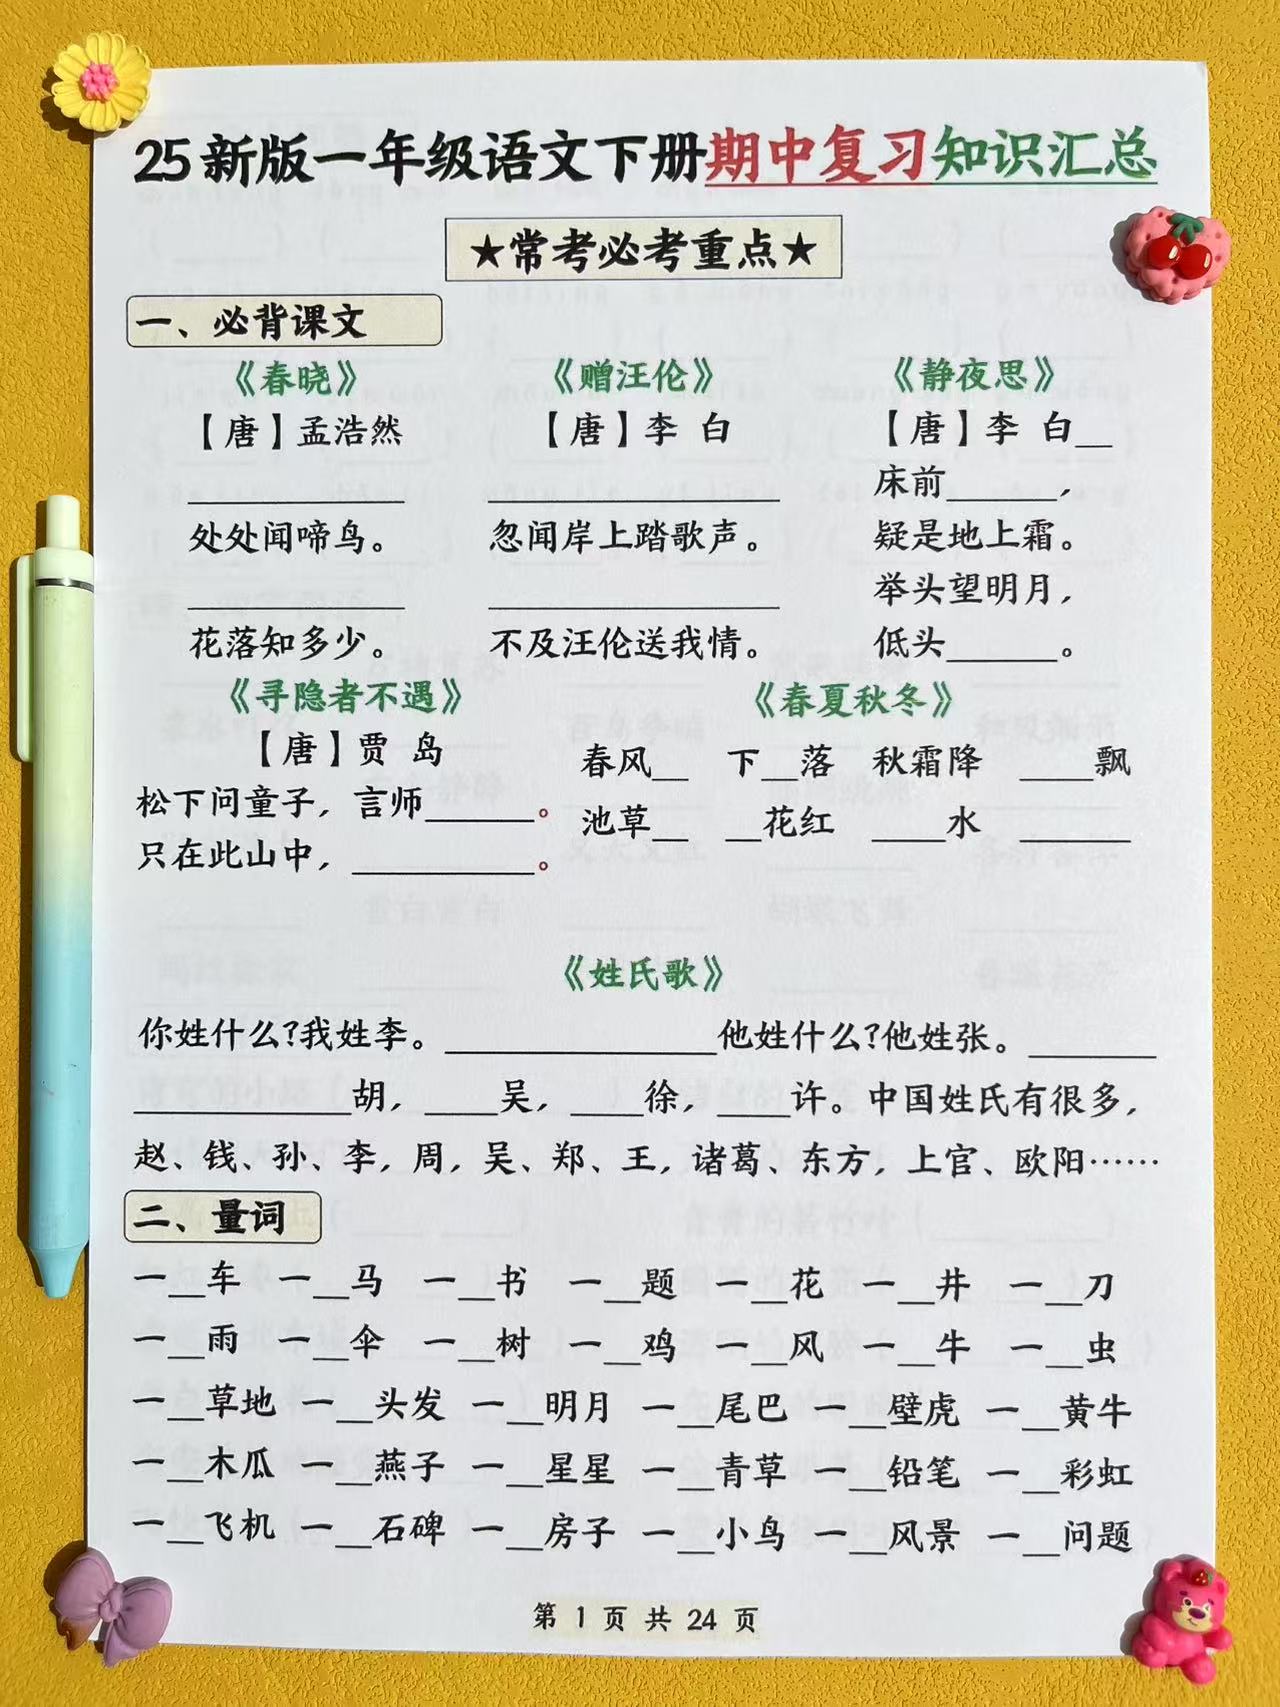 25新版一年级语文下册期中复习知识汇总
★常考必考重点★
一、必背课文
《春晓》
【唐】孟浩然
____________
处处闻啼鸟。
____________
花落知多少。
《赠汪伦》
【唐】李 白
________________
忽闻岸上踏歌声。
________________
不及汪伦送我情。
《静夜思》
【唐】李 白__
床前______，
疑是地上霜。
举头望明月，
低头______。
《寻隐者不遇》
【唐】贾 岛
松下问童子，言师______。
只在此山中，__________。
《春夏秋冬》
春风__ 下__落 秋霜降 ____飘
池草__ __花红 ____水 ______
《姓氏歌》
你姓什么?我姓李。_______________他姓什么?他姓张。_______
____________胡，____吴，____徐，____许。中国姓氏有很多，
赵、钱、孙、李，周，吴、郑、王，诸葛、东方，上官、欧阳……
二、量词
一__车 一__马 一__书 一__题 一__花 一__井 一__刀
一__雨 一__伞 一__树 一__鸡 一__风 一__牛 一__虫
一__草地 一__头发 一__明月 一__尾巴 一__壁虎 一__黄牛
一__木瓜 一__燕子 一__星星 一__青草 一__铅笔 一__彩虹
一__飞机 一__石碑 一__房子 一__小鸟 一__风景 一__问题
第 1 页 共 24 页